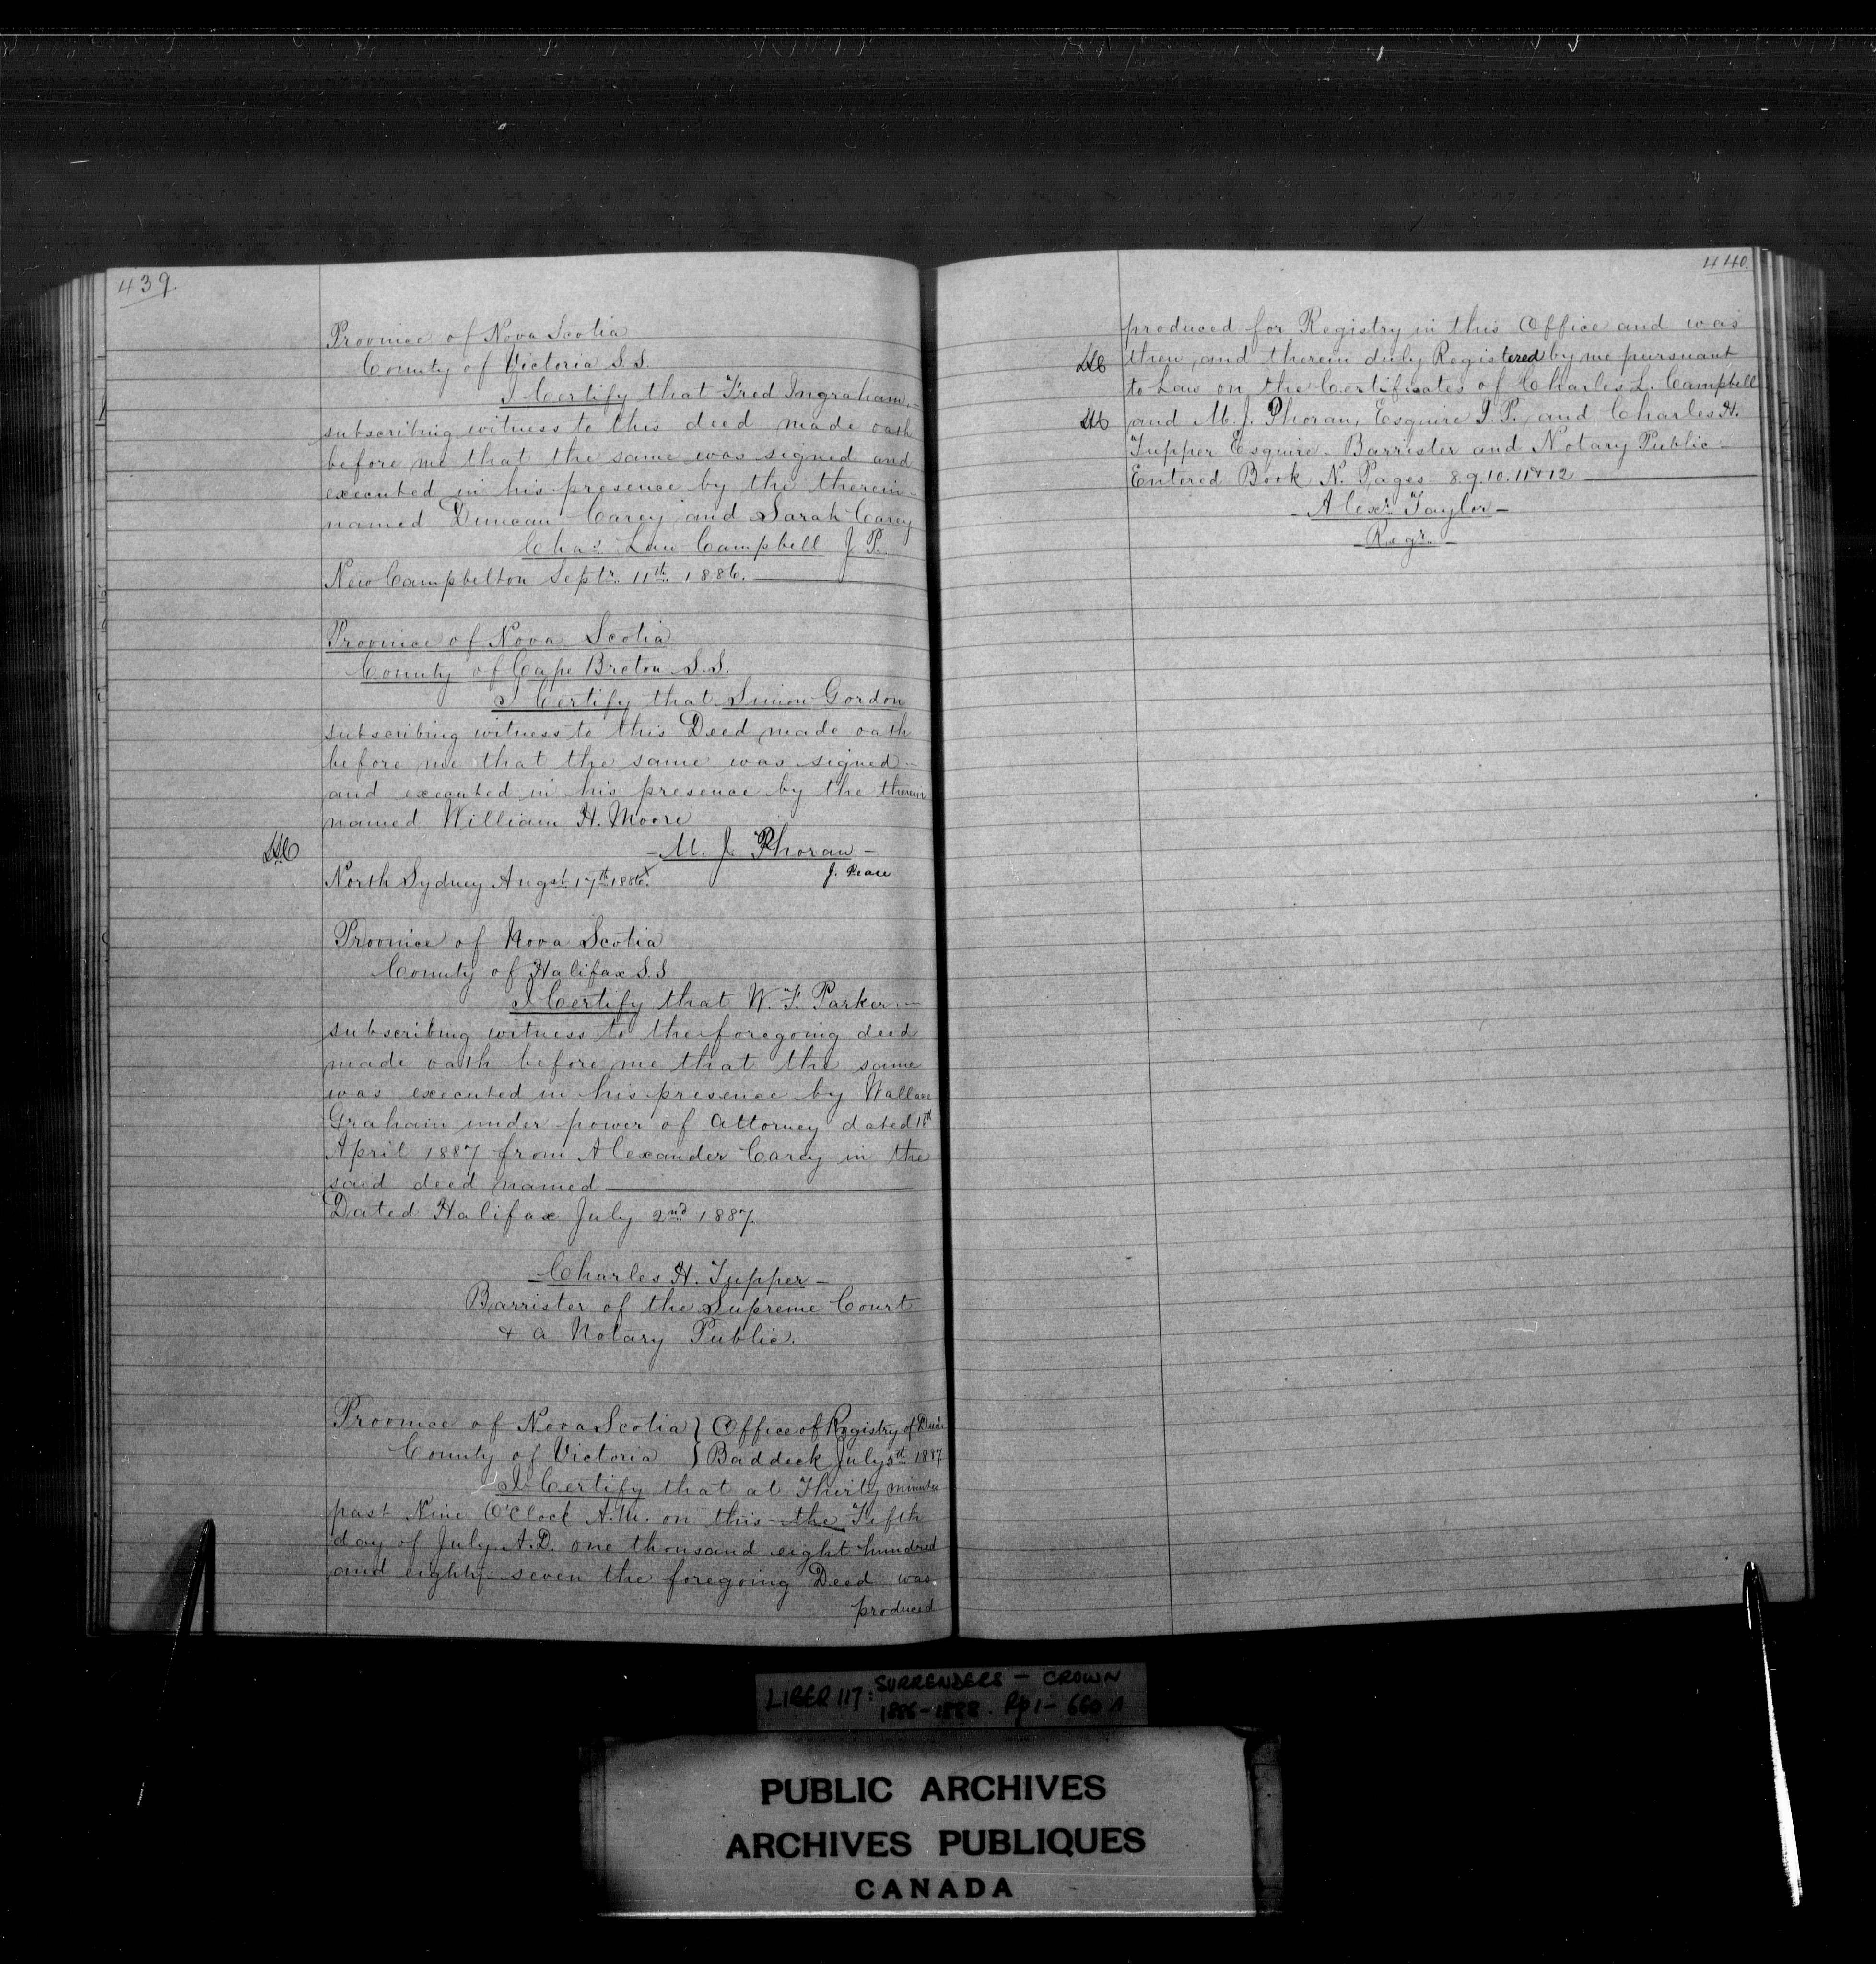 439.
Province of Nova Scotia
County of Victoria S.S.
I Certify that Fred Ingraham
subscribing witness to this deed made oath
before me that the same was signed and
executed in his presence by the therein
named Duncan Carey and Sarah Carey
Chas. Law Campbell J P.
New Campbelton Septr. 11th 1886.
Province of Nova Scotia
County of Cape Breton S.S.
I Certify that Simon Gordon
subscribing witness to this Deed made oath
before me that the same was signed
and executed in his presence by the therein
named William H. Moore
M. J. Phoran
J. Peace
North Sydney Augst. 17th 1886.
Province of Nova Scotia
County of Halifax S.S
I Certify that W. F. Parker
subscribing witness to the foregoing deed
made oath before me that the same
was executed in his presence by Wallace
Graham under power of Attorney dated 16th
April 1887 from Alexander Carey in the
said deed named
Dated Halifax July 2nd 1887.
Charles H. Tupper
Barrister of the Supreme Court
& a Notary Public.
Province of Nova Scotia } Office of Registry of Deeds
County of Victoria } Baddeck July 5th 1887
I Certify that at Thirty minutes
past Nine O'Clock A.M. on this the Fifth
day of July A.D. one thousand eight hundred
and eighty seven the foregoing Deed was
produced
440.
produced for Registry in this Office and was
then, and therein duly Registered by me pursuant
to Law on the Certificates of Charles L. Campbell
and M. J. Phoran, Esquire J.P., and Charles H.
Tupper Esquire Barrister and Notary Public
Entered Book N. Pages 8.9.10.11 & 12
Alexr. Taylor
Regr.
LIBER 117: SURRENDERS - CROWN
1886-1888. Pp 1-660 A
PUBLIC ARCHIVES
ARCHIVES PUBLIQUES
CANADA